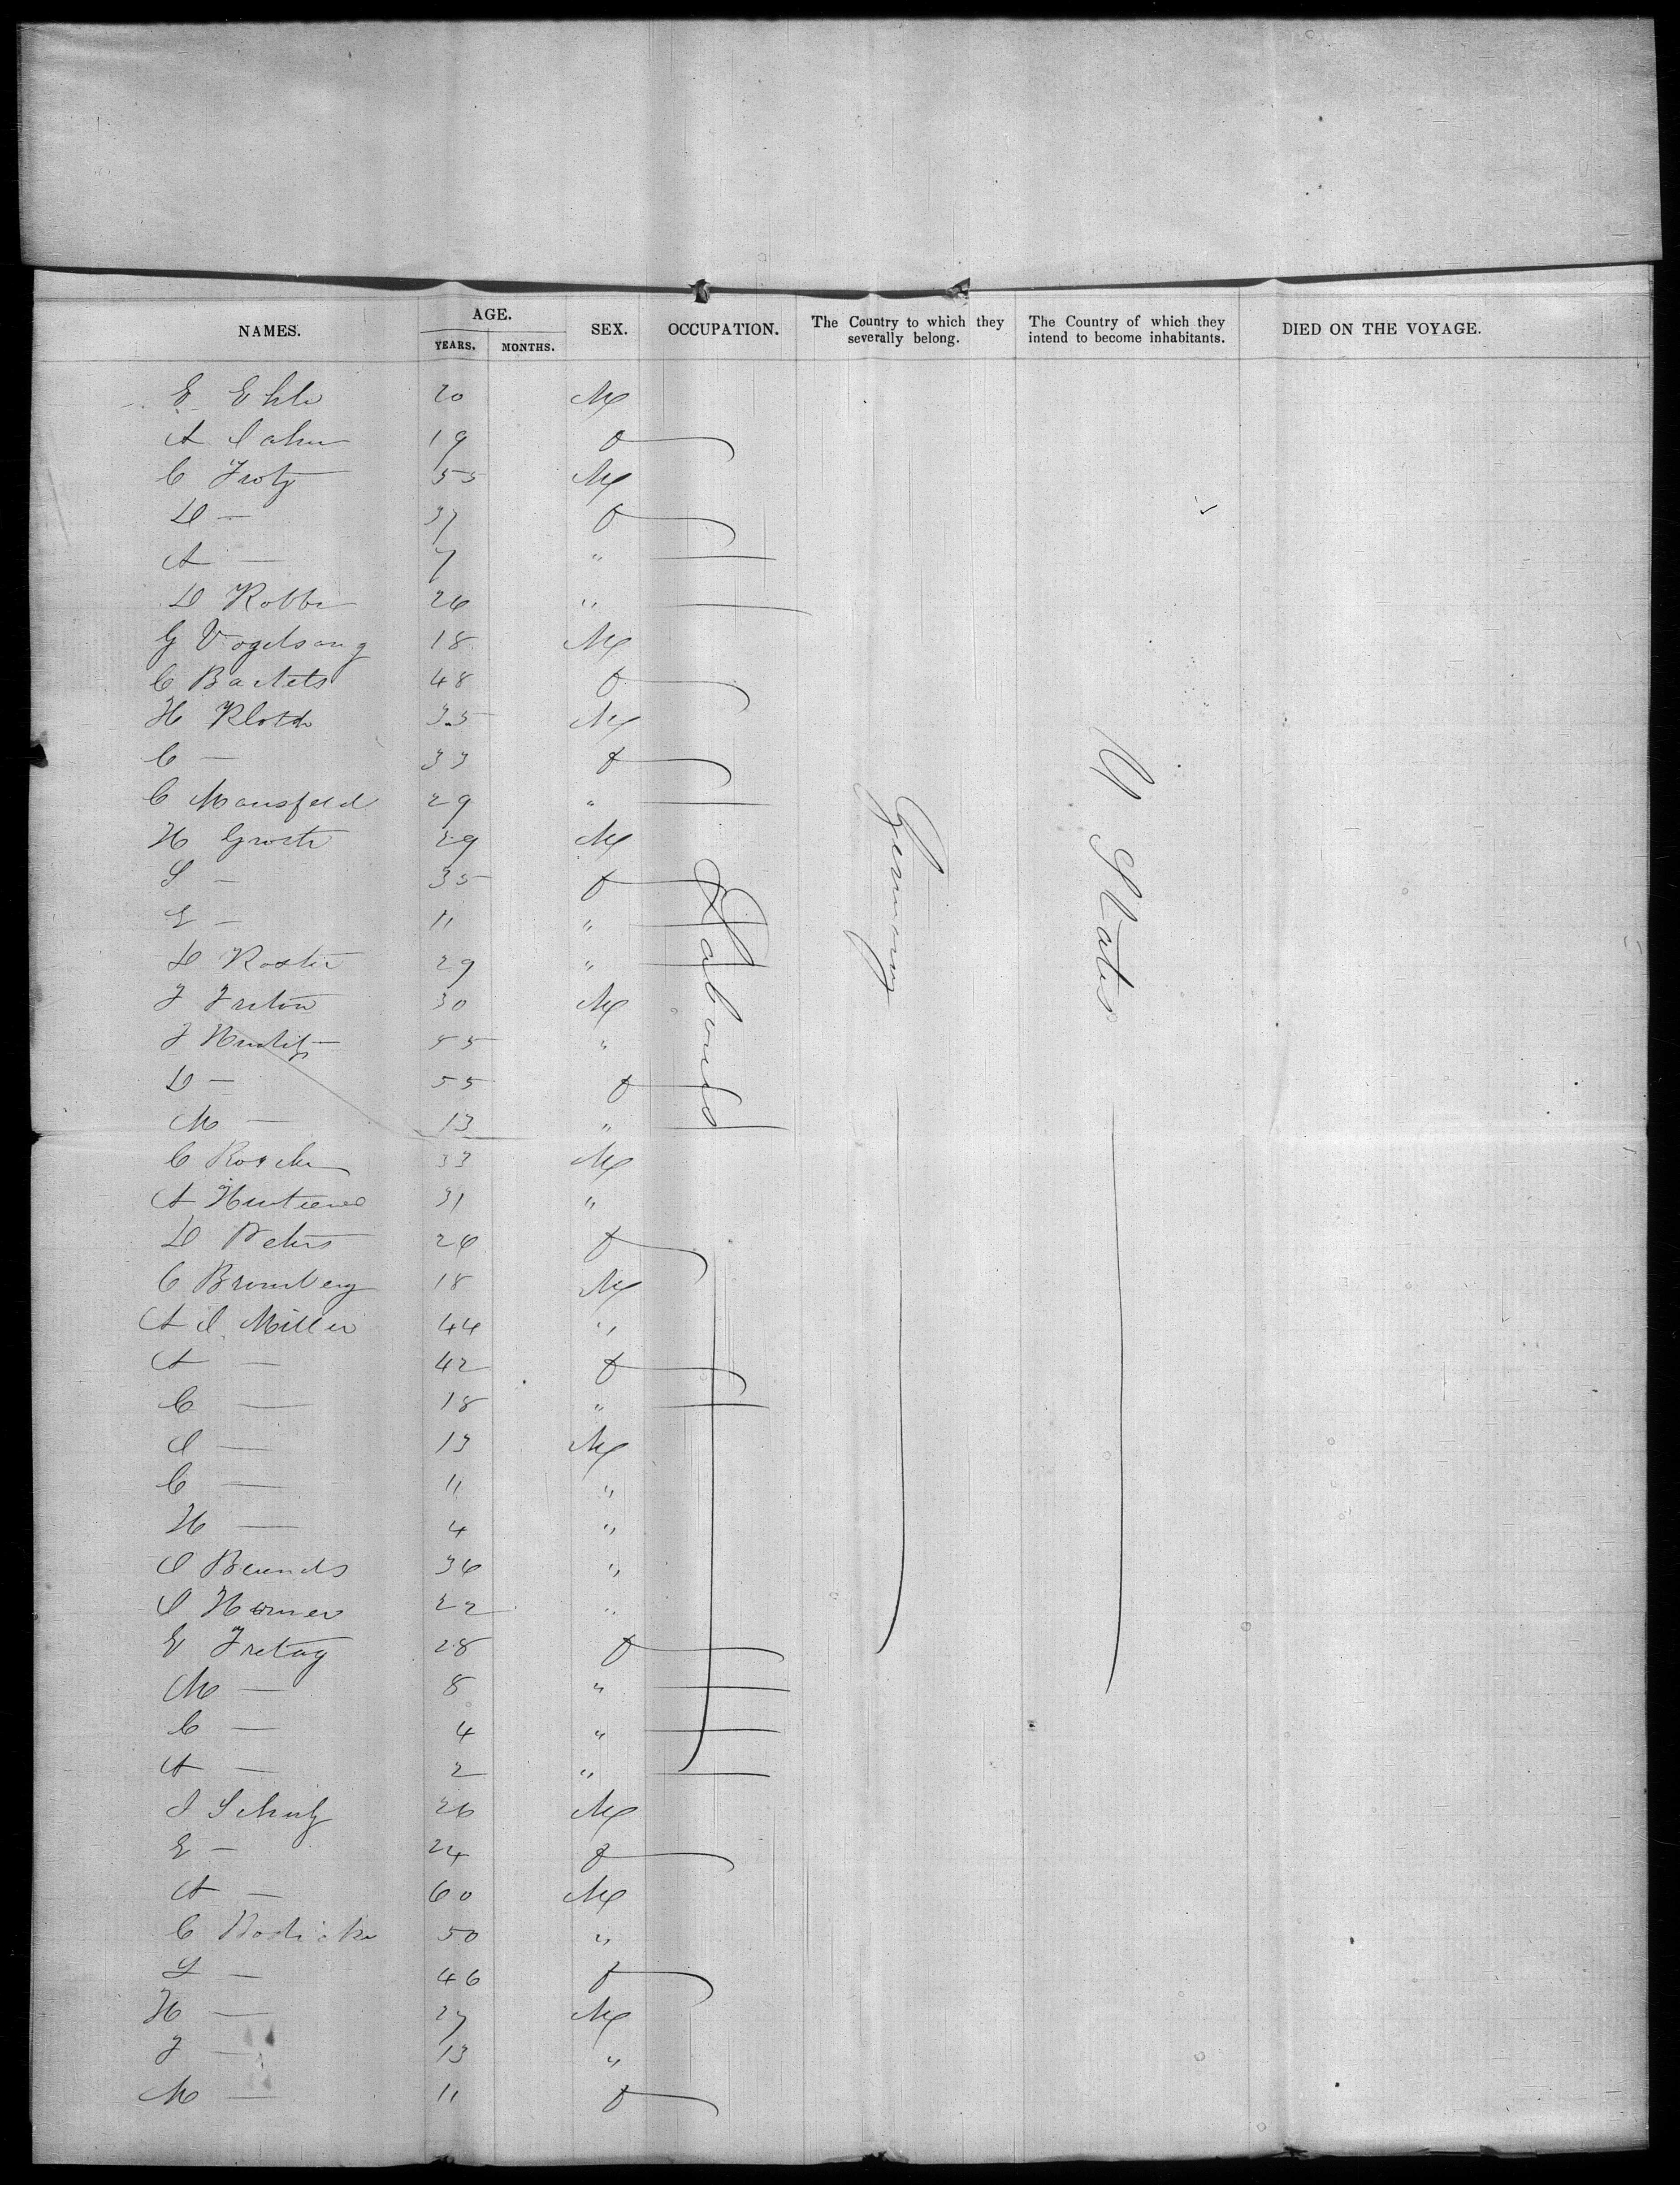 NAMES. AGE. SEX. OCCUPATION. The Country to which they severally belong. The Country of which they intend to become inhabitants. DIED ON THE VOYAGE.
YEARS. MONTHS.
E Ehle 20 M
A 19 f
C 55 M
D — 37 f
A — 7 "
D Robbe 26 "
G Vogelsang 18 M
C Bartels 48 f
H Kloth 35 M
C — 33 f
C Mansfeld 29 "
H Grote 29 M
S — 35 f
E — 11 "
D Koster 29 "
F 30 M
F 55 "
D — 55 f
M — 13 "
C 33 M
A 31 "
D Peters 26 f
C Bromberg 18 M
A J Miller 44 "
A — 42 f
C — 18 "
J — 13 M
C — 11 "
H — 4 "
J Berends 36 "
J Horner 22 "
E Fretag 28 f
M — 8 "
C — 4 "
A — 2 "
J Schulz 26 M
E — 24 f
A — 60 M
C 50 "
L — 46 f
H — 27 M
F — 13 "
M — 11 f
Labourers
Germany
U States